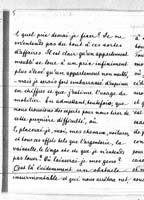 à quel prix devrai-je fixer ? Je ne
m'entends pas du tout à ces sortes
d'affaires. Il est clair qu'un appartement
meublé se loue à un prix infiniment
plus élevé qu'un appartement non meublé,
mais je serais fort embarrassé d'exprimer
en chiffres ce que j'estime l'usage du
mobilier. En admettant, toutefois, que
nous trouvions des sujets pour nous tirer de
cette première difficulté, où
placerai-je, moi, mes chevaux, voitures
et tous ces effets tels que l'argenterie, la
vaisselle, le linge etc. de que je n'entends
pas louer ? Où laisserai-je mes gens ?
C'est là évidemment un obstacle
insurmontable et qui nous arrêtera net